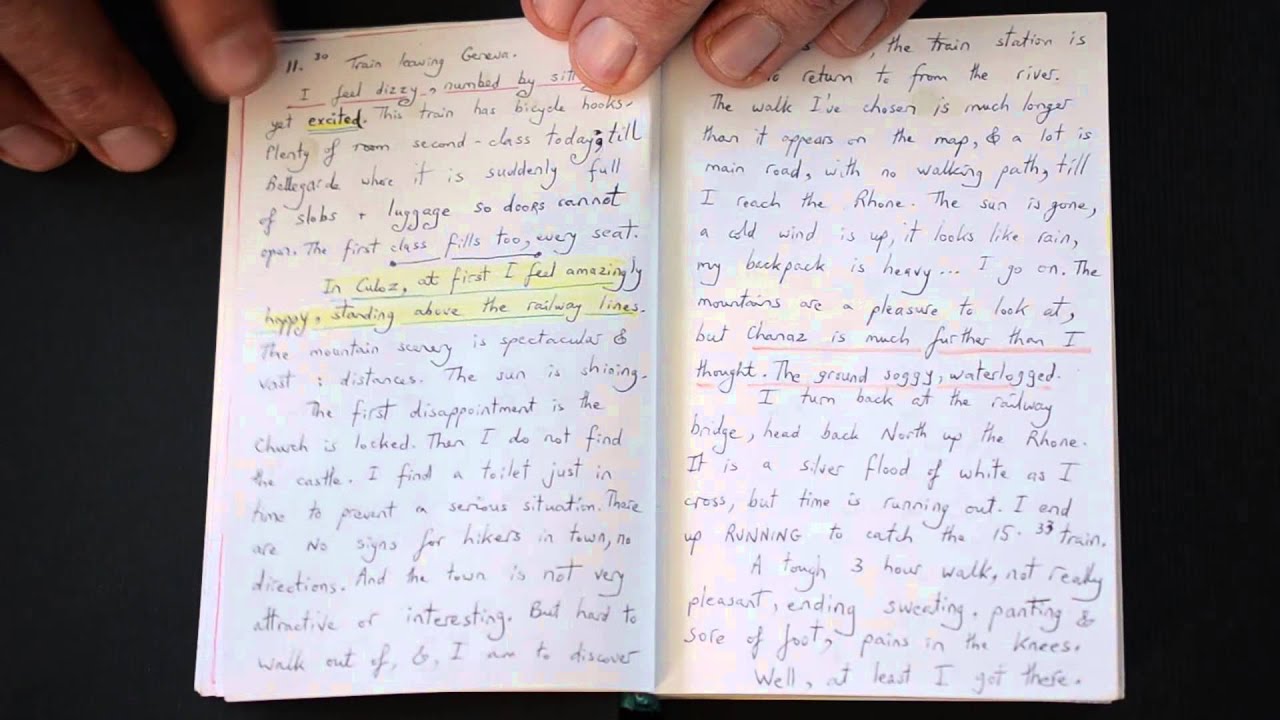 11.30 Train leaving Geneva.
I feel dizzy, numbed by
yet excited. This train has bicycle hooks.
Plenty of room second-class today, till
Bellegarde where it is suddenly full
of slobs + luggage so dooRs cannot
open. The first class fills too, every seat.
In Culoz, at first I feel amazingly
happy, standing above the railway lines.
The mountain scenery is spectacular &
vast : distances. The sun is shining.
The first disappointment is the
church is locked. Then I do not find
the castle. I find a toilet just in
time to prevent a serious situation. There
are No signs for hikers in town, no
directions. And the town is not very
attractive or interesting. But hard to
walk out of, &, I am to discover
, the train station is
return to from the river.
The walk I've chosen is much longer
than it appears on the map, & a lot is
main road, with no walking path, till
I reach the Rhone. The sun is gone,
a cold wind is up, it looks like rain,
my backpack is heavy... I go on. The
mountains are a pleasure to look at,
but Chanaz is much further than I
thought. The ground soggy, waterlogged.
I turn back at the railway
bridge, head back North up the Rhone.
It is a silver flood of white as I
cross, but time is running out. I end
up RUNNING to catch the 15.33 train.
A tough 3 hour walk, not really
pleasant, ending sweating, panting &
sore of foot, pains in the knees.
Well, at least I got there.